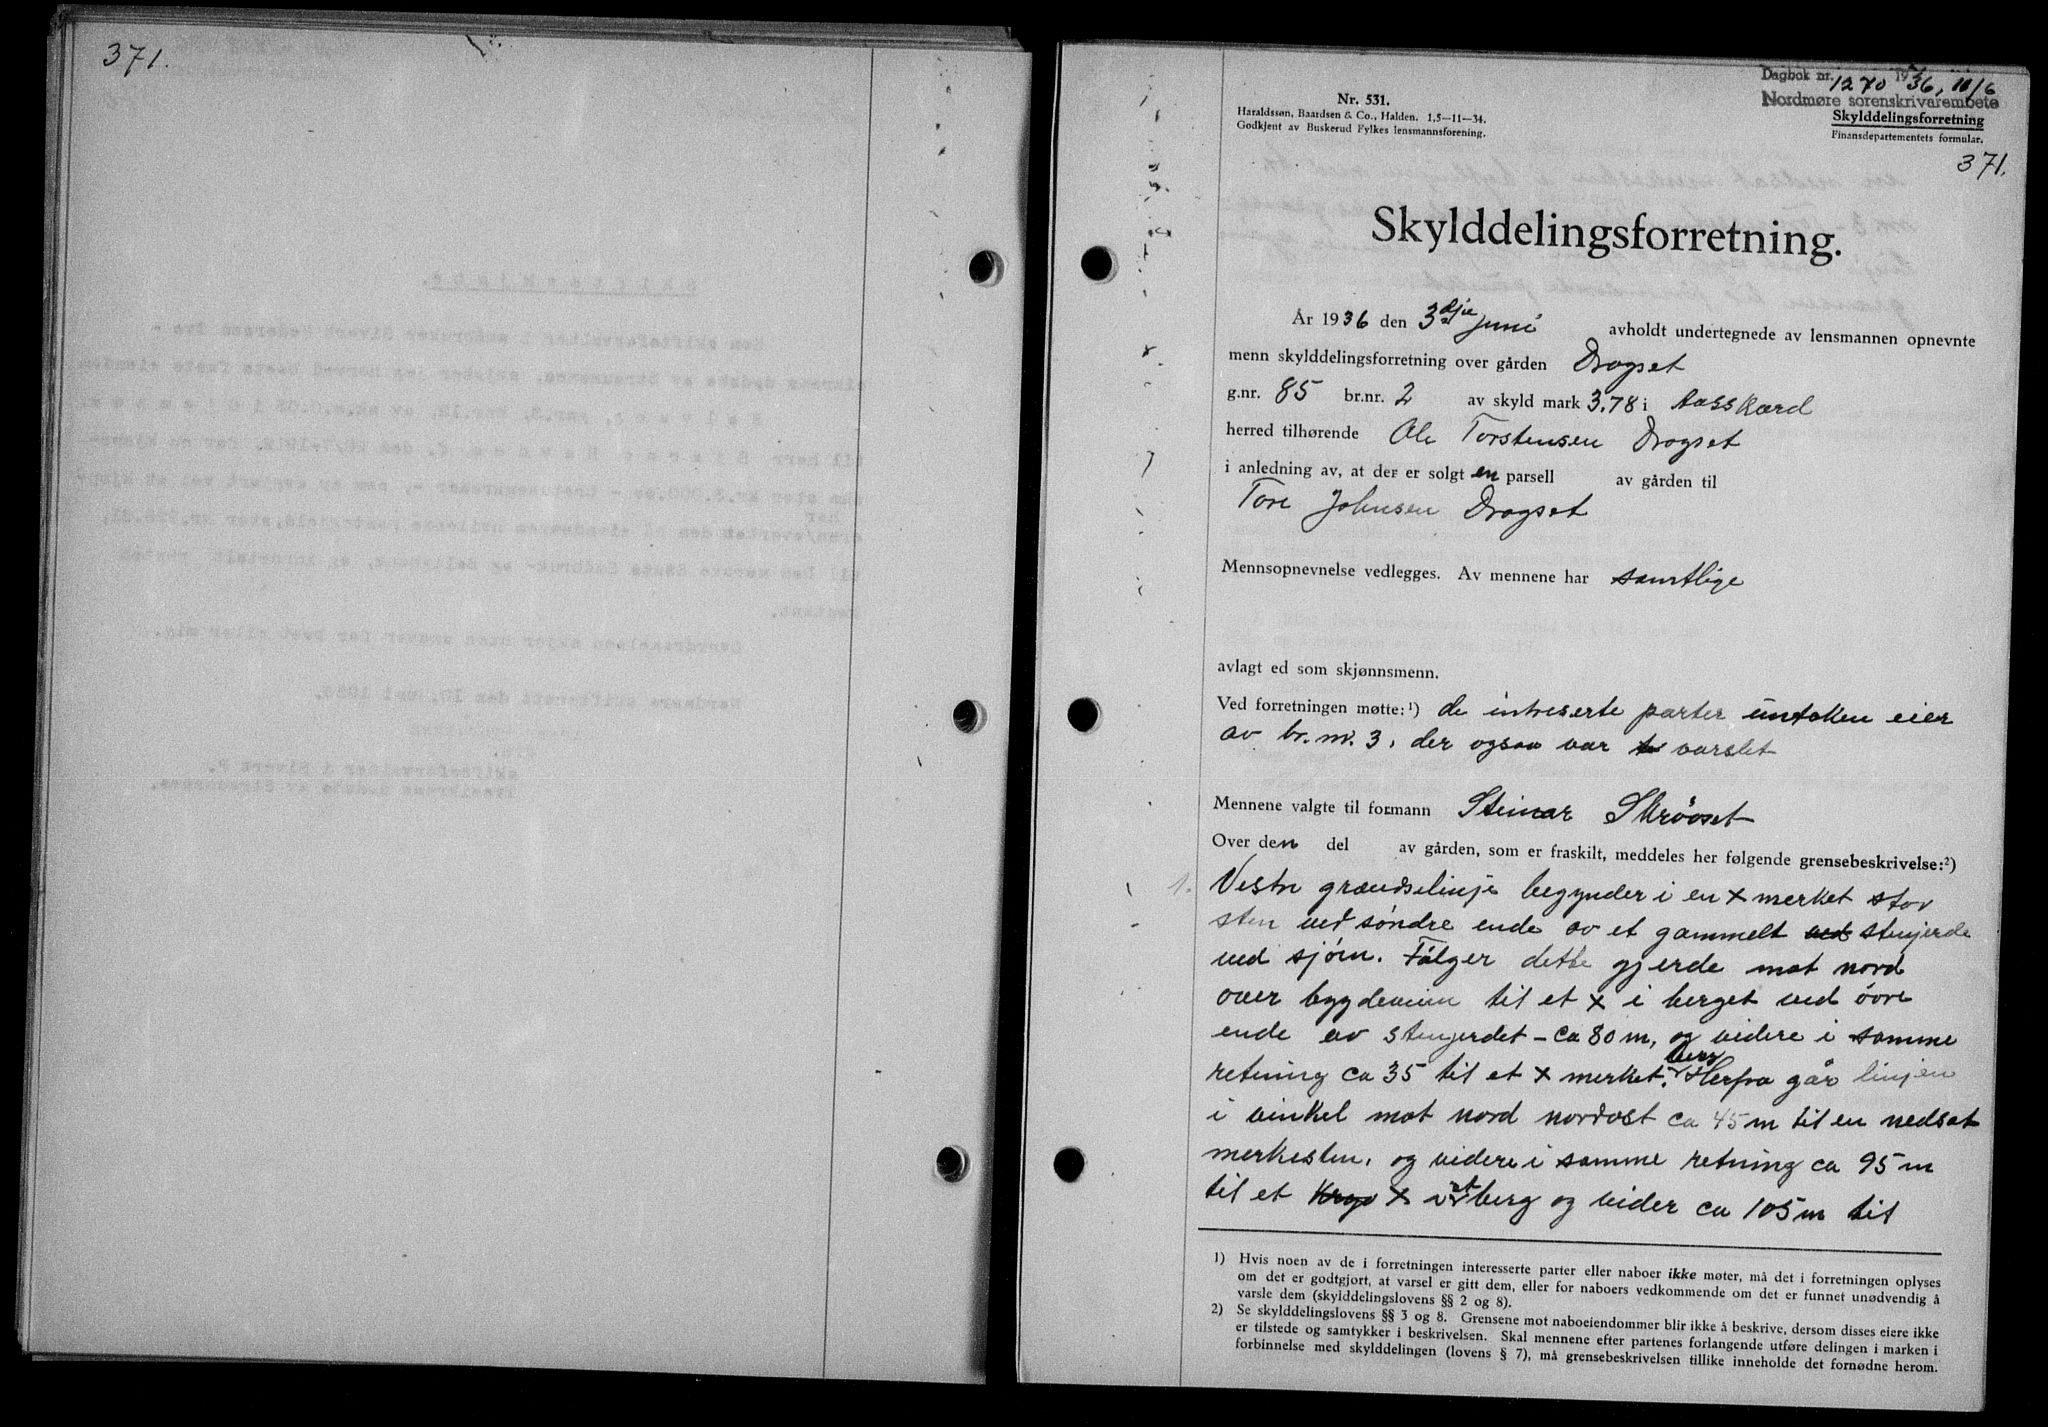 371.
Dagbok nr. 1270 1936, 10/6
Nordmøre sorenskrivarembete
Nr. 531.
Haraldssøn, Baardsen & Co., Halden. 1,5—11—34.
Godkjent av Buskerud Fylkes lensmannsforening.
Skylddelingsforretning
Finansdepartementets formular.
371.
Skylddelingsforretning.
År 1936 den 3dje juni avholdt undertegnede av lensmannen opnevnte
menn skylddelingsforretning over gården Drogset
g.nr. 85 br.nr. 2 av skyld mark 3,78 i Aasskard
herred tilhørende Ole Torstensen Drogset
i anledning av, at der er solgt en parsell av gården til
Tore Johnsen Drogset
Mennsopnevnelse vedlegges. Av mennene har samtlige
avlagt ed som skjønnsmenn.
Ved forretningen møtte:¹) de intreserte parter untaken eier
av br. nr. 3, der ogsaa var varslet
Mennene valgte til formann Steinar Skrøvset
Over den del av gården, som er fraskilt, meddeles her følgende grensebeskrivelse:²)
1. Vestre grændselinje begynder i en x merket stor
sten ved søndre ende av et gammelt ved stenjerde
ved sjøen. Følger dette gjerde mot nord
over bygdeveien til et x i berget ved övre
ende av stenjerdet – ca 80 m, og videre i samme
retning ca 35 til et x merket berg. Herfra går linjen
i vinkel mot nord nordost ca 45 m til en nedsat
merkesten, og videre i samme retning ca 95 m
til et x berg og vider ca 105 m til
1) Hvis noen av de i forretningen interesserte parter eller naboer ikke møter, må det i forretningen oplyses
om det er godtgjort, at varsel er gitt dem, eller for naboers vedkommende om det er funnet unødvendig å
varsle dem (skylddelingslovens §§ 2 og 8).
2) Se skylddelingslovens §§ 3 og 8. Grensene mot naboeiendommer blir ikke å beskrive, dersom disses eiere ikke
er tilstede og samtykker i beskrivelsen. Skal mennene efter partenes forlangende utføre delingen i marken i
forbinnelse med skylddelingen (lovens § 7), må grensebeskrivelsen tillike inneholde det fornødne herom.